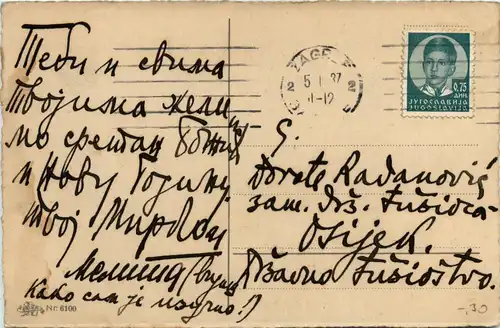 Теби и свима
твојима жели
мо сретан Божић
и Нову Годину
твој Мирко и
(види
како сам је научио!)
Nr. 6100
ZAGREB
2 5. I. 37 2
11-12
0,75
ДИН.
ЈУГОСЛАВИЈА
JUGOSLAVIJA
G.
Đorđe Radanović
zam. drž. tužioca
Osijek.
Državno tužioštvo.
-.30